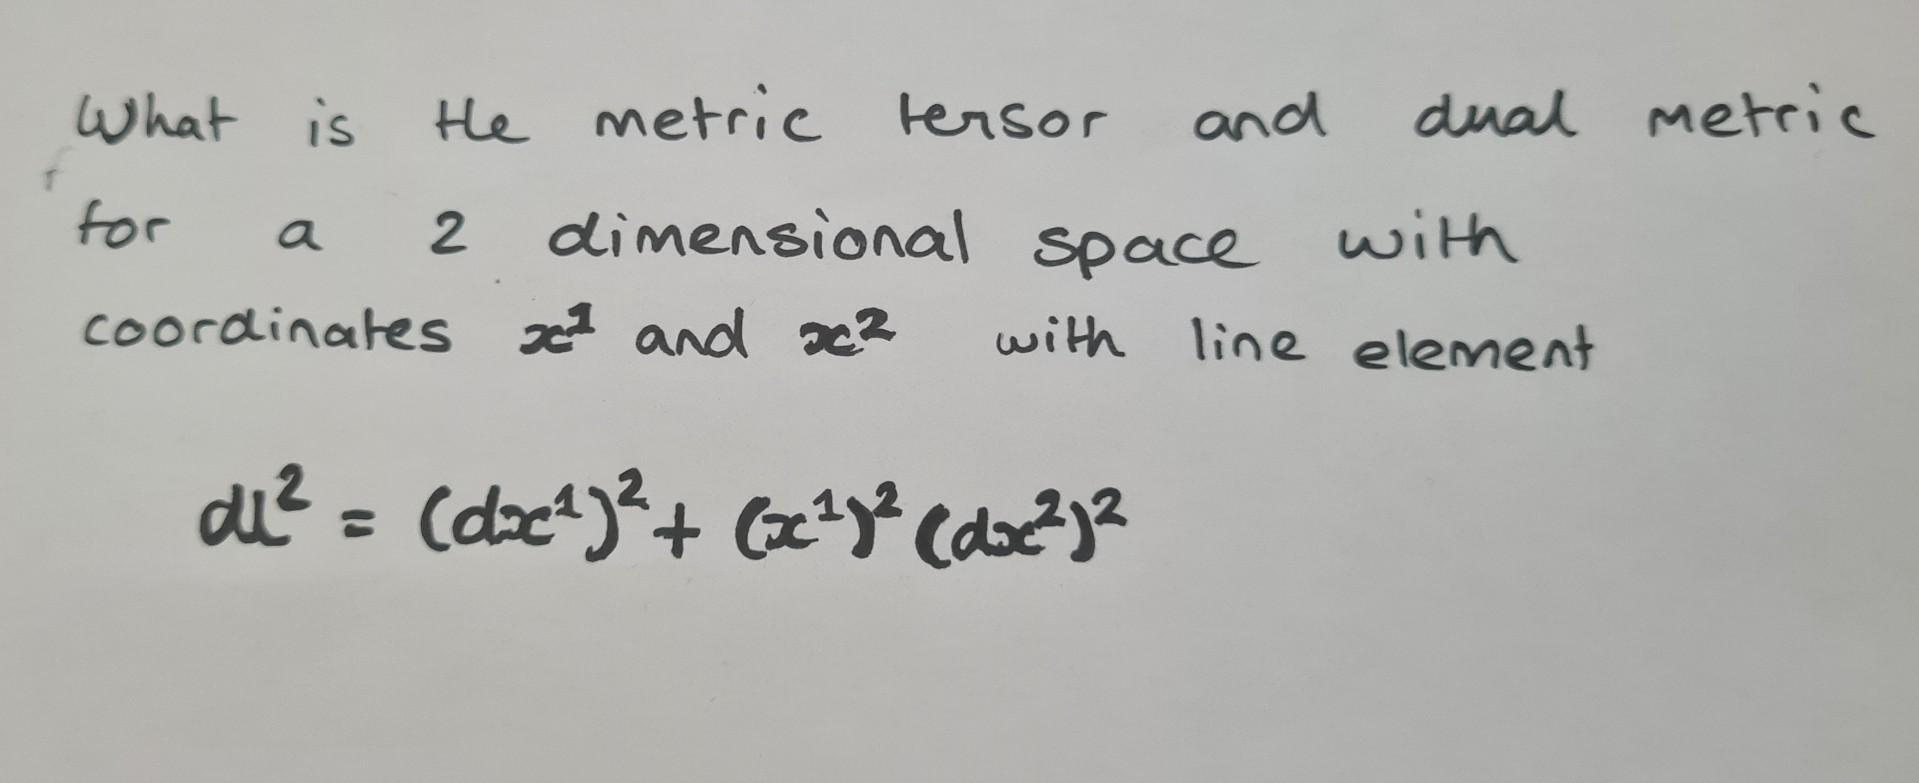 What is the metric tensor and dual metric
for a 2 dimensional space with
coordinates x¹ and x² with line element
dl² = (dx¹)² + (x¹)² (dx²)²